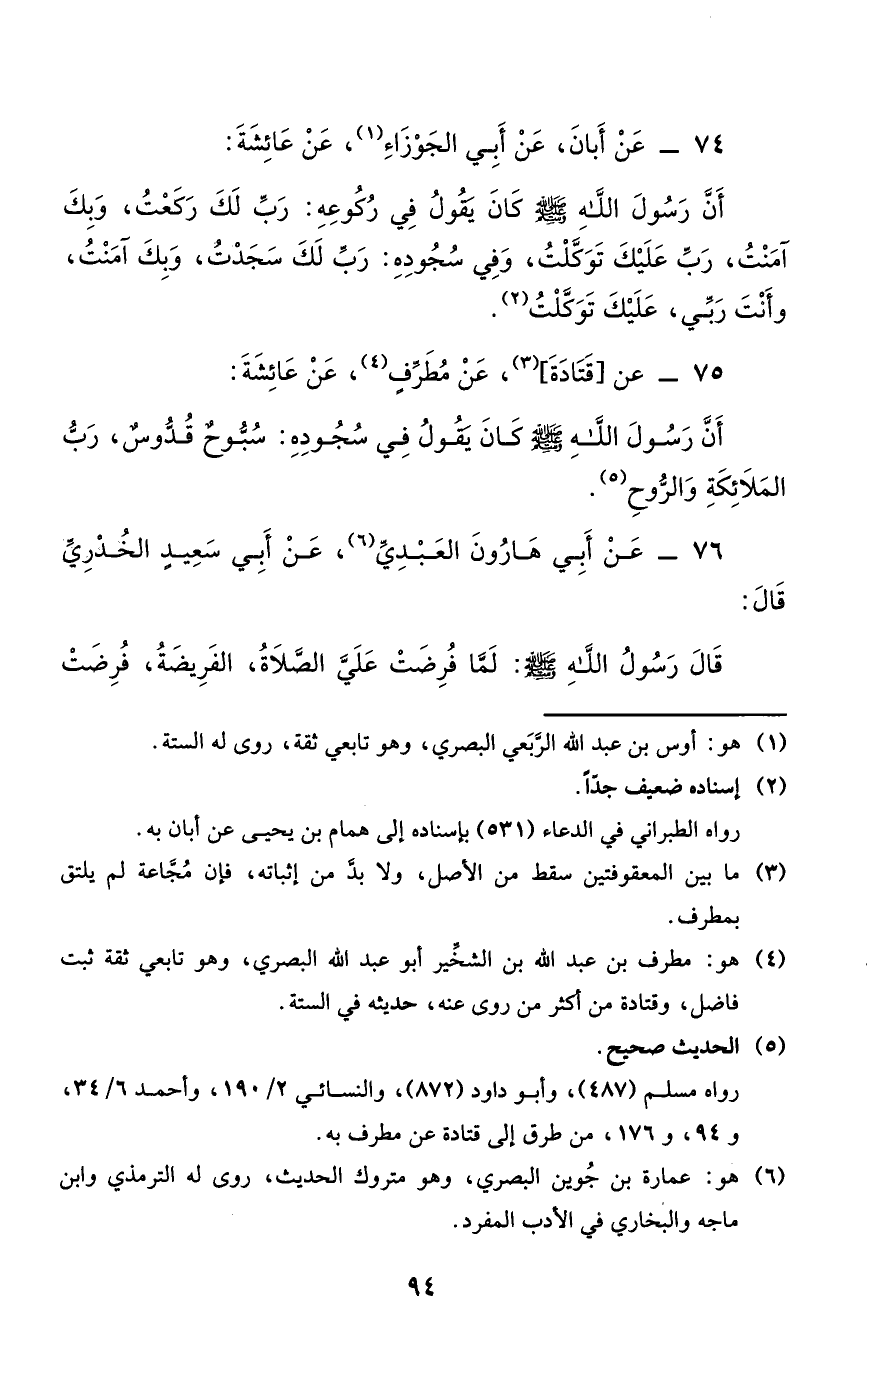 ٧٤ ــ عَنْ أَبانَ، عَنْ أَبِي الجَوْزَاءِ(١)، عَنْ عَائِشَةَ:
أَنَّ رَسُولَ اللَّهِ ﷺ كَانَ يَقُولُ فِي رُكُوعِهِ: رَبِّ لَكَ رَكَعْتُ، وَبِكَ
آمَنْتُ، رَبِّ عَلَيْكَ تَوَكَّلْتُ، وَفِي سُجُودِهِ: رَبِّ لَكَ سَجَدْتُ، وَبِكَ آمَنْتُ،
وأَنْتَ رَبِّي، عَلَيْكَ تَوَكَّلْتُ(٢).
٧٥ ــ عن [قَتَادَةَ](٣)، عَنْ مُطَرِّفٍ(٤)، عَنْ عَائِشَةَ:
أَنَّ رَسُولَ اللَّهِ ﷺ كَانَ يَقُولُ فِي سُجُودِهِ: سُبُّوحٌ قُدُّوسٌ، رَبُّ
المَلَائِكَةِ وَالرُّوحِ(٥).
٧٦ ــ عَنْ أَبِي هَارُونَ العَبْدِيِّ(٦)، عَنْ أَبِي سَعِيدٍ الخُدْرِيِّ
قَالَ:
قَالَ رَسُولُ اللَّهِ ﷺ: لَمَّا فُرِضَتْ عَلَيَّ الصَّلَاةُ، الفَرِيضَةُ، فُرِضَتْ
(١) هو: أوس بن عبد الله الرَّبَعي البصري، وهو تابعي ثقة، روى له الستة.
(٢) إسناده ضعيف جدّاً.
رواه الطبراني في الدعاء (٥٣١) بإسناده إلى همام بن يحيى عن أبان به.
(٣) ما بين المعقوفتين سقط من الأصل، ولا بدَّ من إثباته، فإن مُجَّاعة لم يلتق
بمطرف.
(٤) هو: مطرف بن عبد الله بن الشخِّير أبو عبد الله البصري، وهو تابعي ثقة ثبت
فاضل، وقتادة من أكثر من روى عنه، حديثه في الستة.
(٥) الحديث صحيح.
رواه مسلم (٤٨٧)، وأبو داود (٨٧٢)، والنسائي ٢/ ١٩٠، وأحمد ٦/ ٣٤،
و ٩٤، و ١٧٦، من طرق إلى قتادة عن مطرف به.
(٦) هو: عمارة بن جُوين البصري، وهو متروك الحديث، روى له الترمذي وابن
ماجه والبخاري في الأدب المفرد.
٩٤